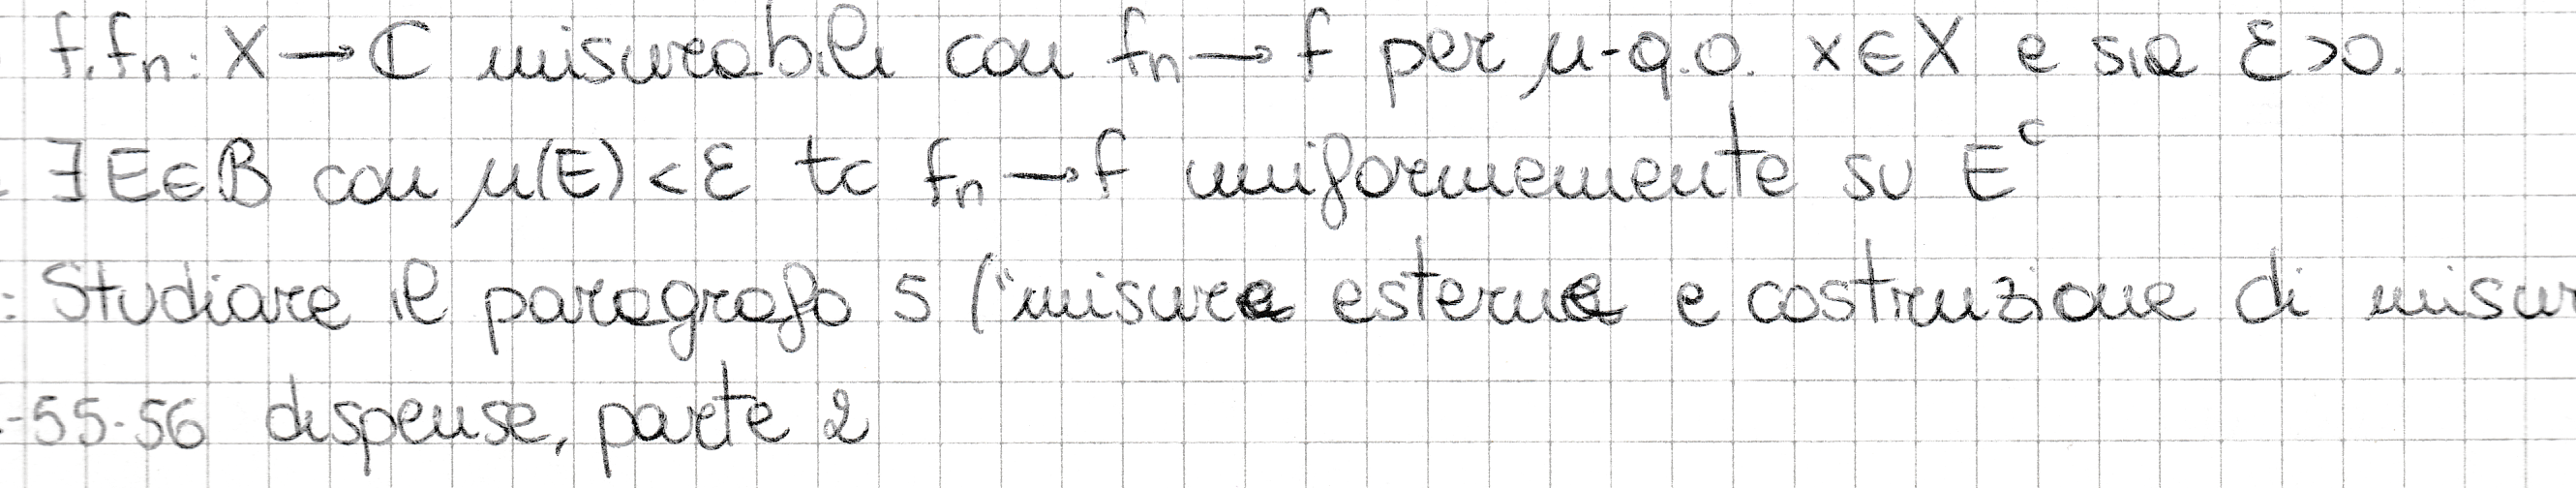 f,fn: X→ℂ misurabili con fn→f per μ-q.o. x∈X e sia ε>0.
∃E∈B con μ(E)<ε tc fn→f uniformemente su E^c
: Studiare il paragrafo 5 ("misure esterne e costruzione di misur
-55-56 dispense, parte 2